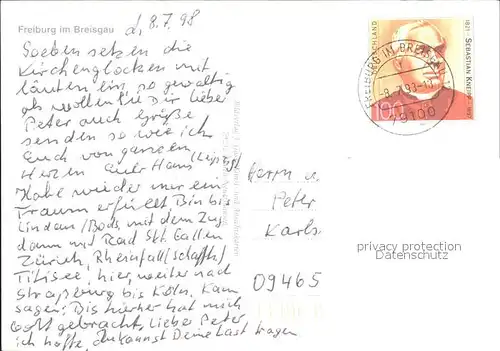 Freiburg im Breisgau
d, 8.7.98
Soeben setzen die
Kirchenglocken mit
läuten ein, so gewaltig
als wollen sie Dir lieber
Peter auch Grüße
senden so wie ich
Euch von ganzem
Herzen Euer Hans (Leipzig)
Habe wieder mir ein
Traum erfüllt Bin bis
Lindau/Bods. mit dem Zug
dann mit Rad Skt. Gallen
Zürich, Rheinfall (schaffh)
Titisee, hier, weiter nach
Straßburg bis Köln. Kann
sagen: Bis hierher hat mich
Gott gebracht, lieber Peter,
ich hoffe, Du kannst Deine Last tragen
DEUTSCHLAND
100
1821 SEBASTIAN KNEIPP 1897
FREIBURG IM BREISGAU
79100
Herrn u.
Peter
Karls
09465
privacy protection
Datenschutz